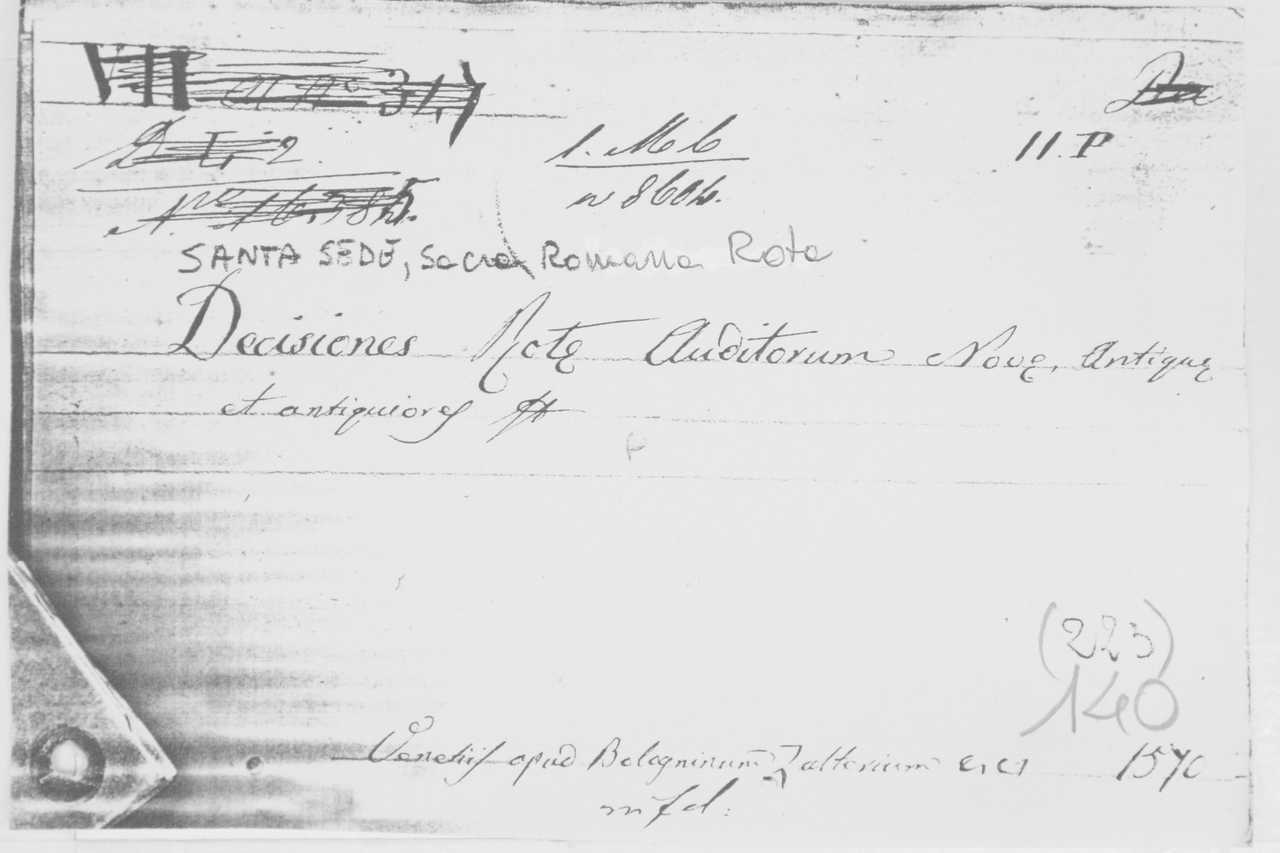 VII 347
11. P
1. M 6
n 8604.
SANTA SEDE, Sacra Romana Rota
Decisiones Rotę Auditorum Novę, Antiquę
et antiquiores
(223)
140
Venetijs apud Bologninum Zalterium 1570
in fol: